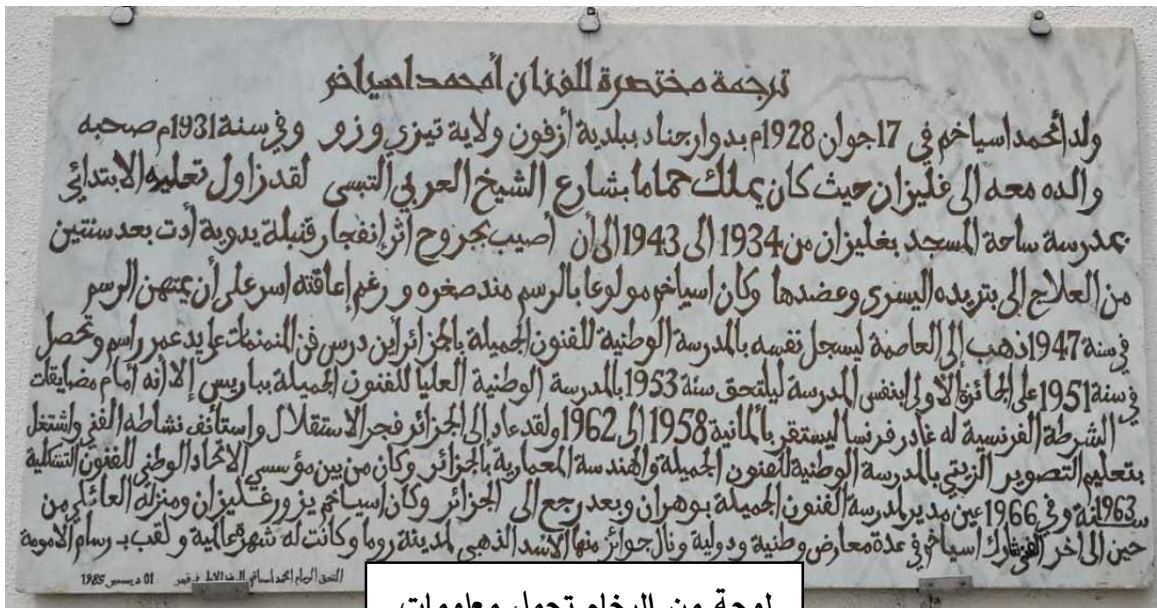 ترجمة مختصرة للفنان أمحمد اسياخم
ولد امحمد اسياخم في 17 جوان 1928م بدوار جناد ببلدية أزفون ولاية تيزي وزو وفي سنة 1931م صحبه
والده معه الى غليزان حيث كان يملك حماما بشارع الشيخ العربي التبسي لقد زاول تعليمه الابتدائي
بمدرسة ساحة المسجد بغليزان من 1934 الى 1943 الى أن أصيب بجروح اثر إنفجار قنبلة يدوية أدت بعد سنتين
من العلاج إلى بتر يده اليسرى وعضدها وكان اسياخم مولوعا بالرسم مند صغره و رغم إعاقته اسر على أن يمتهن الرسم
في سنة 1947 ذهب إلى العاصمة ليسجل نفسه بالمدرسة الوطنية للفنون الجميلة بالجزائر أين درس فن المنمنمات على يد عمر راسم وتحصل
في سنة 1951 على الجائزة الاولى بنفس المدرسة ليلتحق سنة 1953 بالمدرسة الوطنية العليا للفنون الجميلة بباريس إلا أنه أمام مضايقات
الشرطة الفرنسية له غادر فرنسا ليستقر بألمانية 1958 الى 1962 ولقد عاد إلى الجزائر فجر الاستقلال واستأنف نشاطه الفني واشتغل
بتعليم التصوير الزيتي بالمدرسة الوطنية للفنون الجميلة والهندسة المعمارية بالجزائر وكان من بين مؤسسي الاتحاد الوطني للفنون التشكلية
سنة 1963 وفي 1966 عين مدير لمدرسة الفنون الجميلة بوهران وبعد رجع الى الجزائر وكان إسياخم يزور غليزان ومنزله العائلي من
حين الى اخر الفنى شارك اسياخم في عدة معارض وطنية ودولية ونال جوائز منها الاسد الذهبي لمدينة روما وكانت له شهرة عالمية و لقب بـ رسام الامومة
01 ديسمبر 1985
لوحة من الرخام تحمل معلومات